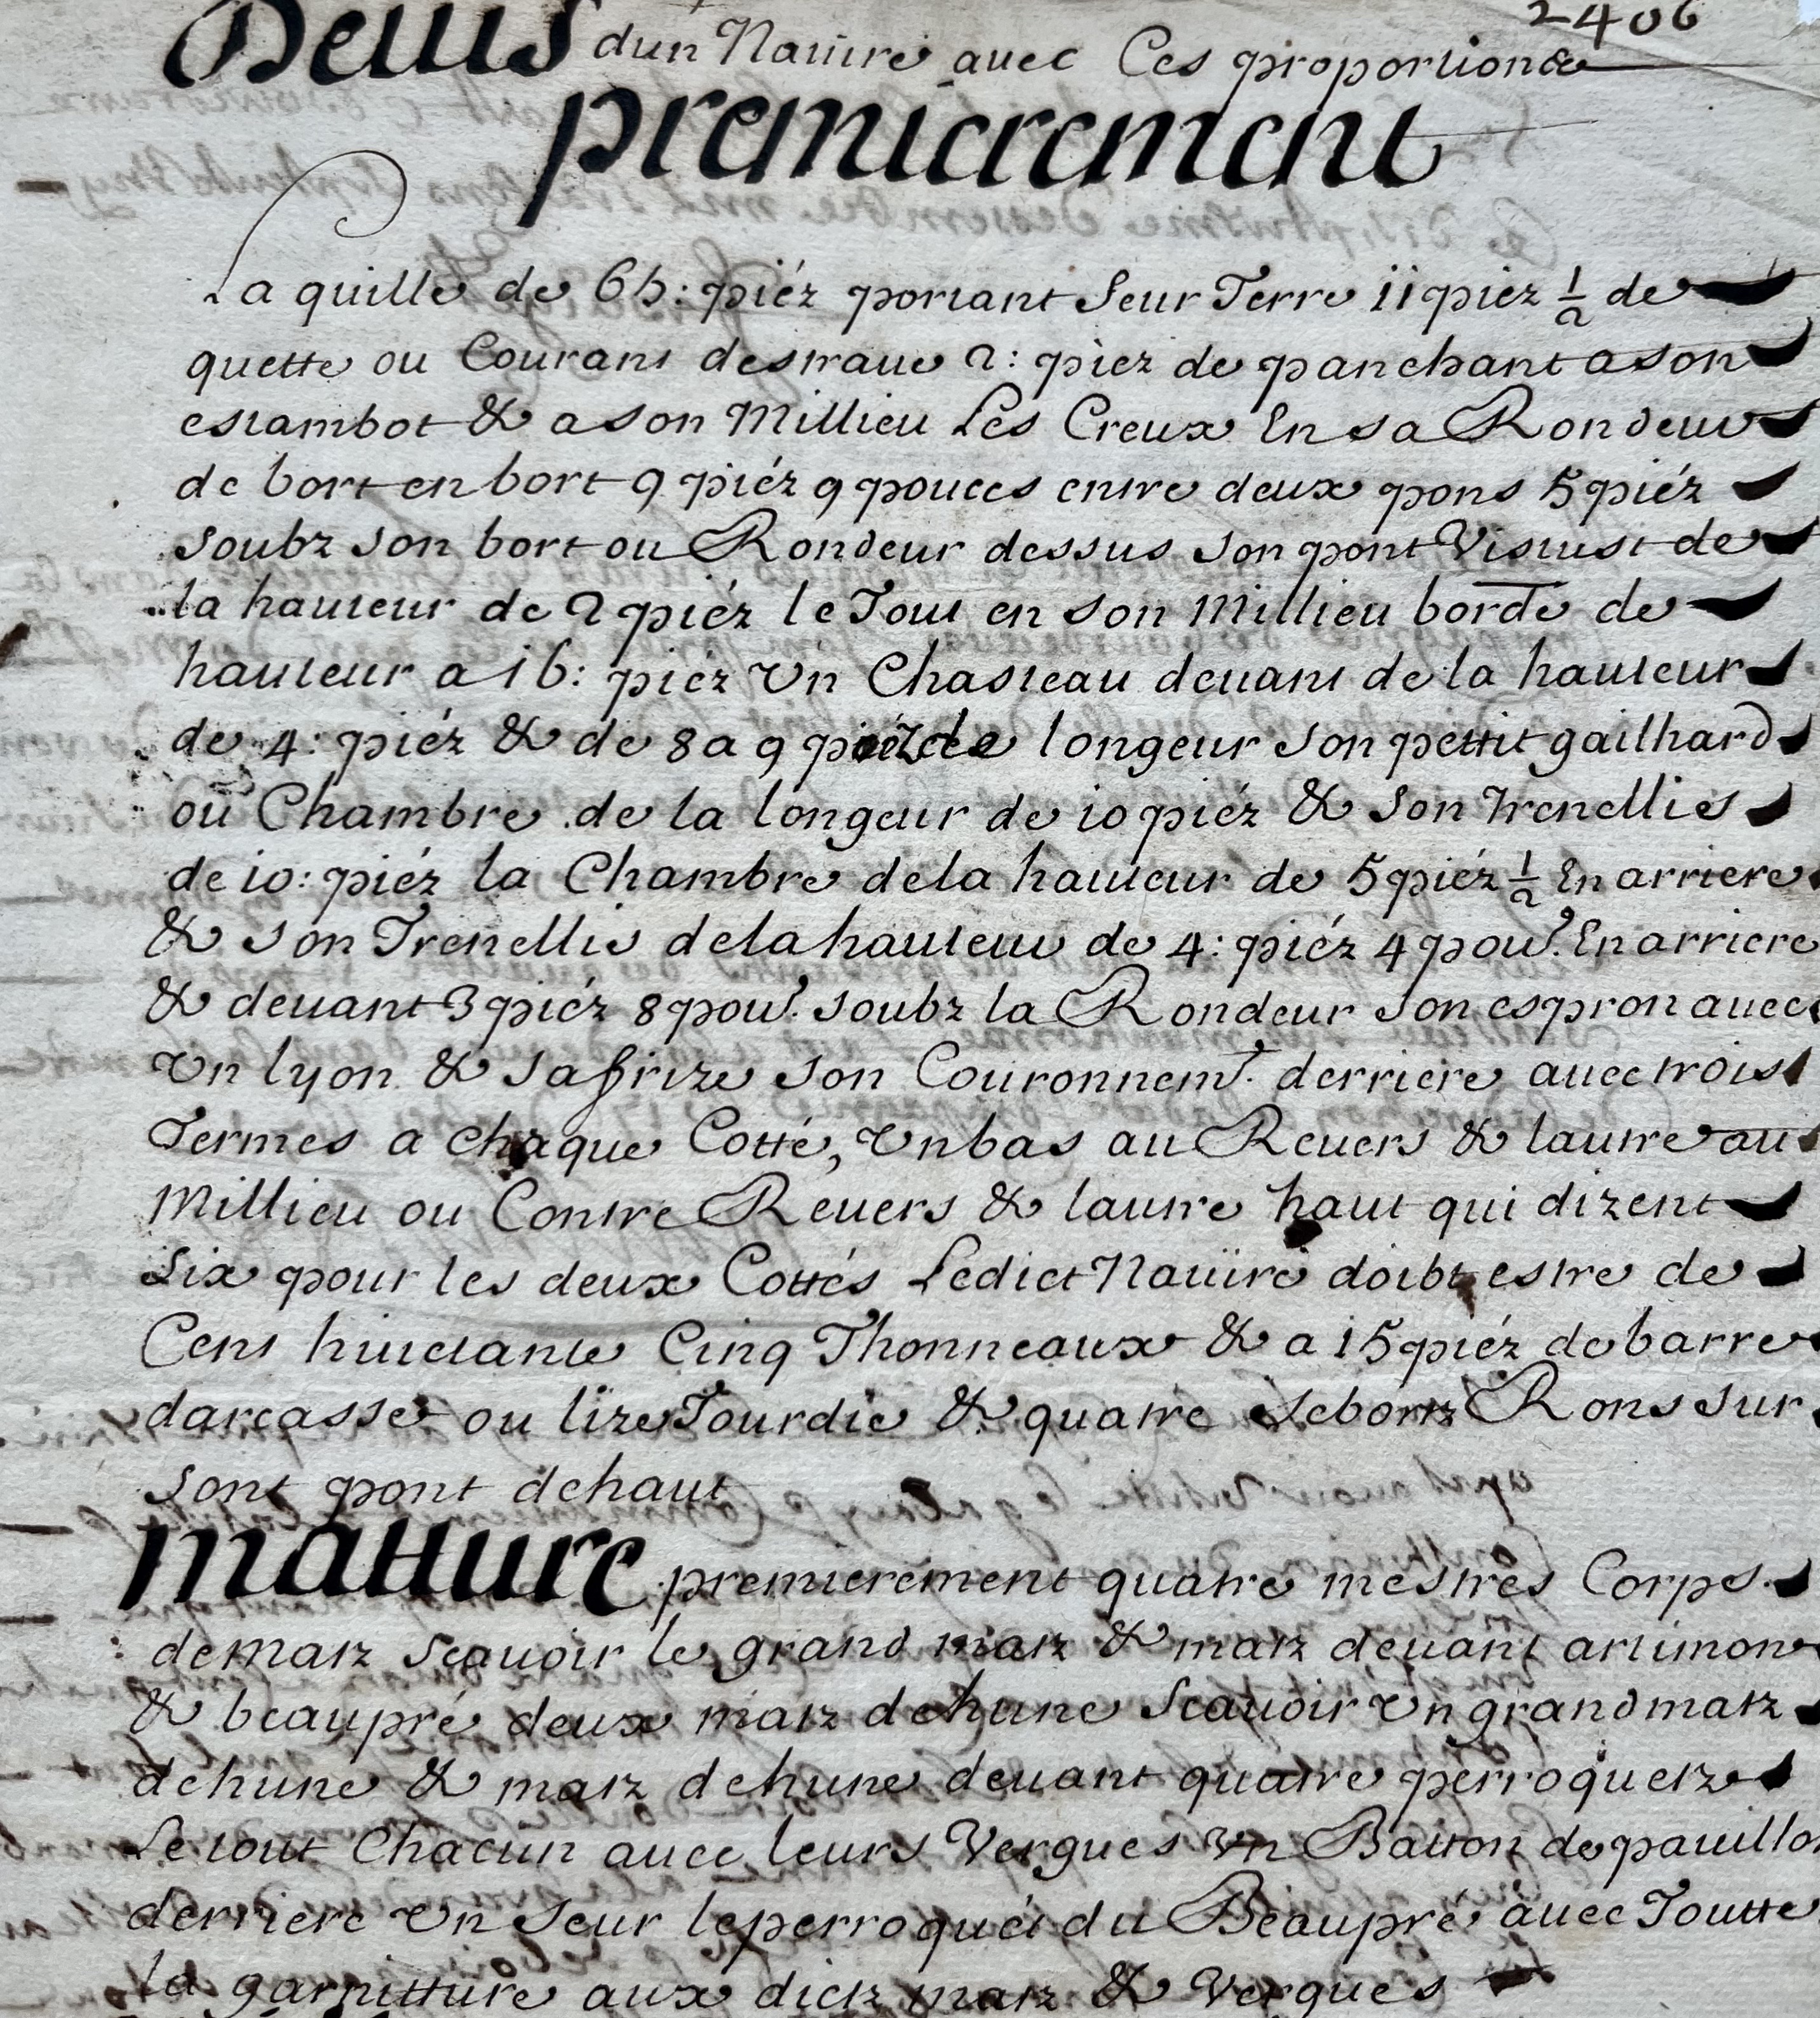 2406
Deuis dun Nauire auec Ces proportions
premierement
La quille de 65: piéz portant Seur Terre 11 piéz 1/2 de
quette ou Courant destraue 2: piez de panchant a son
estambot & a son Millieu Les Creux En sa Rondeur
de bort en bort 9 piéz 9 pouces entre deux pons 5 piéz
soubz son bort ou Rondeur dessus son pont Vistust de
la hauteur de 2 piéz le Tout en son Millieu borde de
hauteur a 16: piéz Vn Chasteau deuant de la hauteur
de 4: piéz & de 8 a 9 piéz de longeur son pettit gailhard
ou Chambre de la longeur de 10 piéz & son trenellis
de 10: piéz la Chambre de la hauteur de 5 piéz 1/2 En arriere
& son Trenellis de la hauteur de 4: piéz 4 pou. En arriere
& deuant 3 piéz 8 pou. soubz la Rondeur son espron auec
Vn lyon & sa frize son Couronnemt. derriere auec trois
Termes a chaque Cotté, Vn bas au Reuers & lautre au
Millieu ou Contre Reuers & lautre haut qui dizent
Six pour les deux Cottés Ledict Nauire doibt estre de
Cent huictante Cinq Thonneaux & a 15 piéz de barre
darcasse ou lize Tourdie & quatre Rons sur
sont pont dehaut
matture premierement quatre mestres Corps
de matz scauoir le grand matz & matz deuant artimon
& beaupré deux matz dehune Scauoir Vn grand matz
dehune & matz dehune deuant quatre perroquetz
Le tout Chacun auec leurs Vergues Vn Batton de pauillon
derriere Vn Seur le perroquét du Beaupré auec Toutte
la garnitture aux dictz matz & Vergues